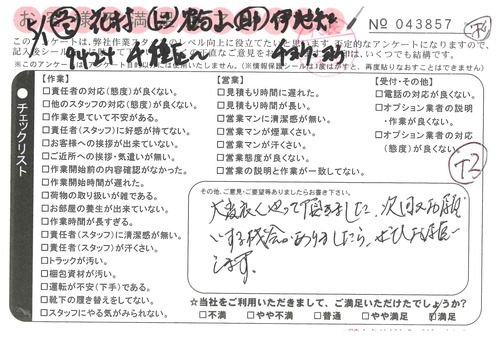 № 043857
このアンケートは、弊社作業スタッフのレベル向上に役立てたいと思います。否定的なアンケートになりますので、
【作業】
□責任者の対応(態度)が良くない。
□他のスタッフの対応(態度)が良くない。
□作業を見ていて不安がある。
□責任者(スタッフ)に好感が持てない。
□お客様への挨拶が出来ていない。
□ご近所への挨拶・気遣いが無い。
□作業開始前の内容確認がなかった。
□作業開始時間が遅れた。
□荷物の取り扱いが雑である。
□お部屋の養生が出来ていない。
□作業時間が長すぎる。
□責任者(スタッフ)に清潔感が無い。
□責任者(スタッフ)が汗くさい。
□トラックが汚い。
□梱包資材が汚い。
□運転が不安(下手)である。
□靴下の履き替えをしてない。
□スタッフにやる気がみられない。
チェックリスト
【営業】
□見積もり時間に遅れた。
□見積もり時間が長い。
□営業マンに清潔感が無い。
□営業マンが煙草くさい。
□営業マンが汗くさい。
□営業態度が良くない。
□営業の説明と作業が一致してない。
【受付・その他】
□電話の対応が良くない。
□オプション業者の説明
・作業が良くない。
□オプション業者の対応
(態度)が良くない。
その他、ご意見・ご要望等ありましたらお書き下さい。
大変良くやって頂きました。次回又お願
いする機会がありましたら、ぜひお願い
します。
☆当社をご利用いただきまして、ご満足いただけたでしょうか?
□不満 □やや不満 □普通 □やや満足 □満足